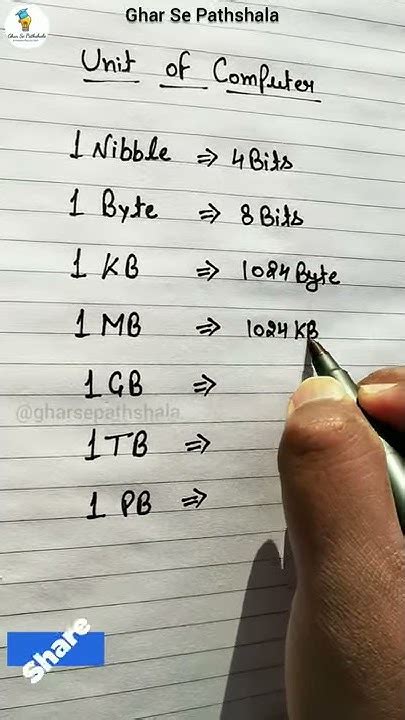 Ghar Se Pathshala
Ghar Se Pathshala
Unit of Computer
1 Nibble ⇒ 4 Bits
1 Byte ⇒ 8 Bits
1 KB ⇒ 1024 Byte
1 MB ⇒ 1024 KB
1 GB ⇒
@gharsepathshala
1 TB ⇒
1 PB ⇒
Share